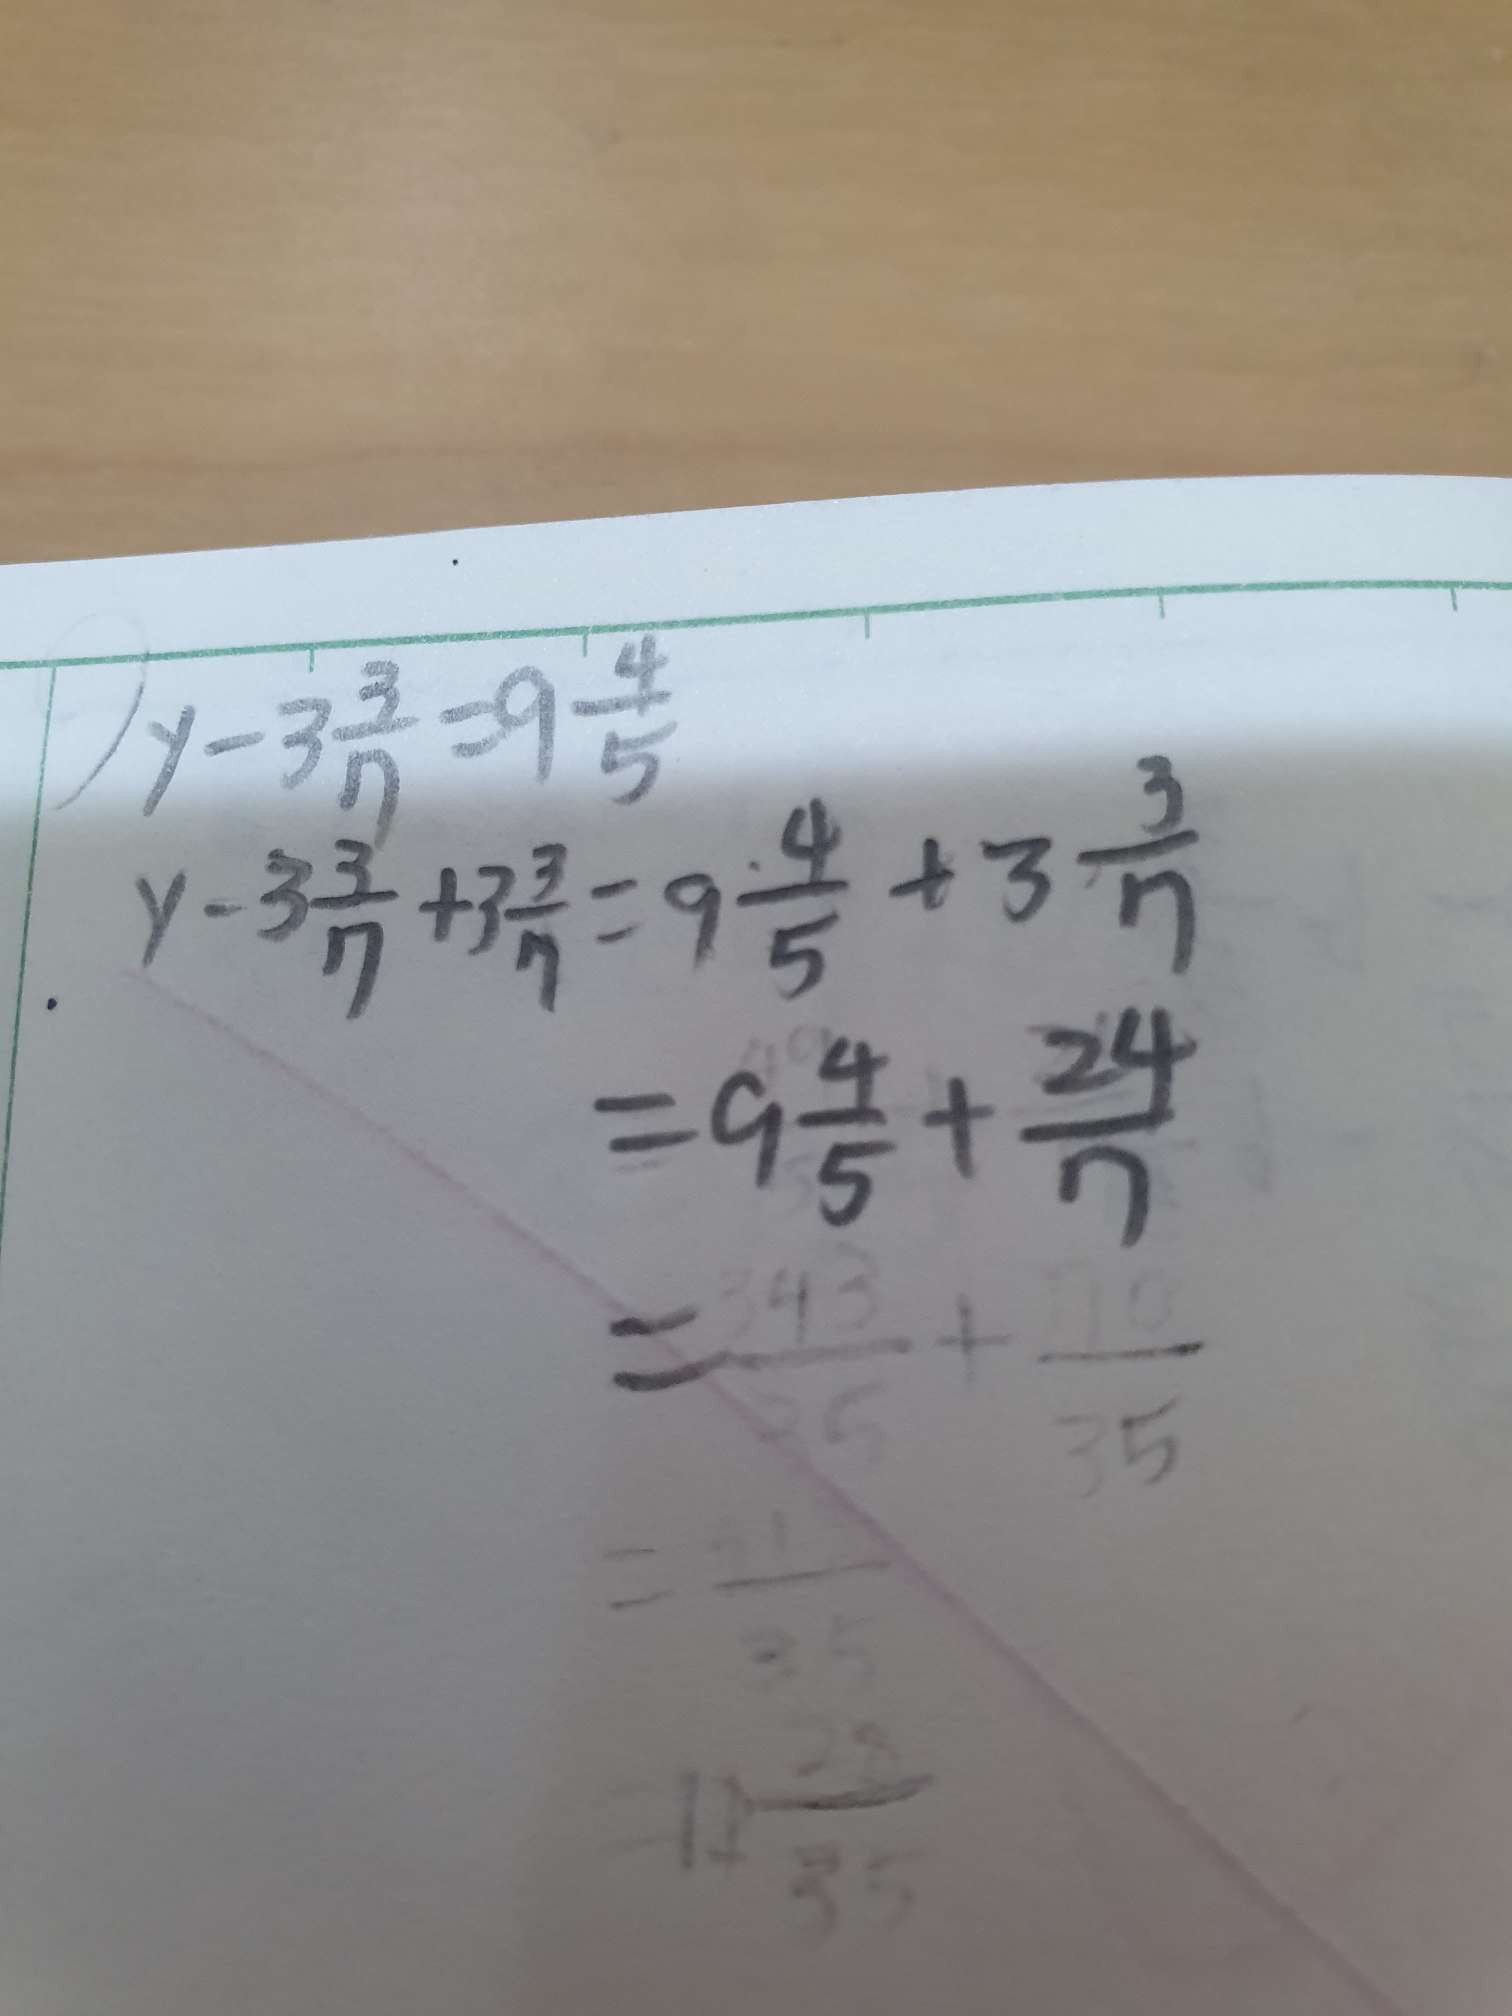 y - 3 3/7 = 9 4/5
y - 3 3/7 + 3 3/7 = 9 4/5 + 3 3/7
= 9 4/5 + 24/7
= 343/35 + /35
= /35